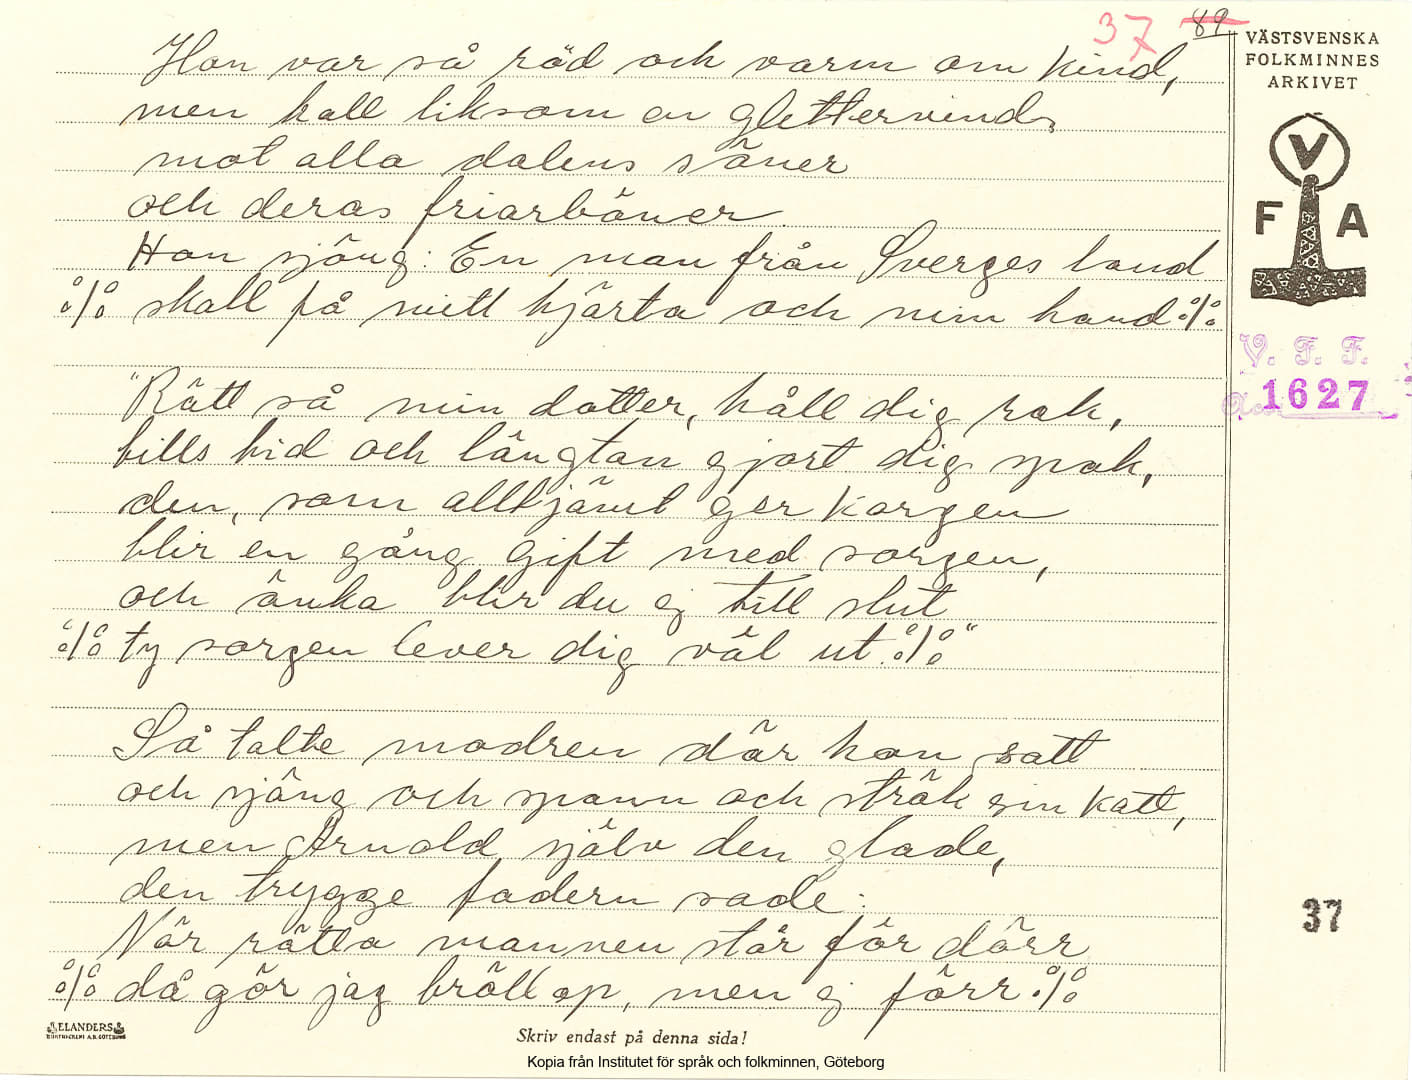 37 89
VÄSTSVENSKA
FOLKMINNES
ARKIVET
V
F A
V. F. F.
1627
Hon var så röd och varm om kind,
men kall liksom en glettervind,
mot alla dalens söner
och deras friarböner.
Hon sjöng: En man från Sverges land
%
skall få mitt hjärta och min hand %
"Rätt så min dotter, håll dig rak,
tills tid och längtan gjort dig spak,
den, som alltjämt ger korgen
blir en gång gift med sorgen,
och änka blir du ej till slut
% ty sorgen lever dig väl ut. %"
Så talte modren där hon satt
och sjöng och spann och strök sin katt,
men Arnold, själv den glade,
den trygge fadern sade:
När rätta mannen står för dörr
% då gör jag bröllop, men ej förr. %
37
ELANDERS
BOKTRYCKERI A.B. GÖTEBORG
Skriv endast på denna sida!
Kopia från Institutet för språk och folkminnen, Göteborg